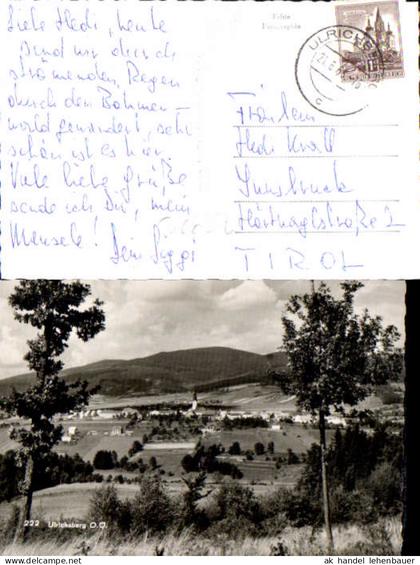 Liebe Hedi, heute
sind wir durch
strömenden Regen
durch den Böhmer-
wald gewandert, sehr
schön ist es hier.
Viele liebe Grüße
sende ich Dir, mein
Dein Siggi
Echte
Fotographie
ULRICHSBERG
Fräulein
Hedi Krall
Innsbruck
TIROL
222 Ulrichsberg O.Ö.
ak handel lehenbauer